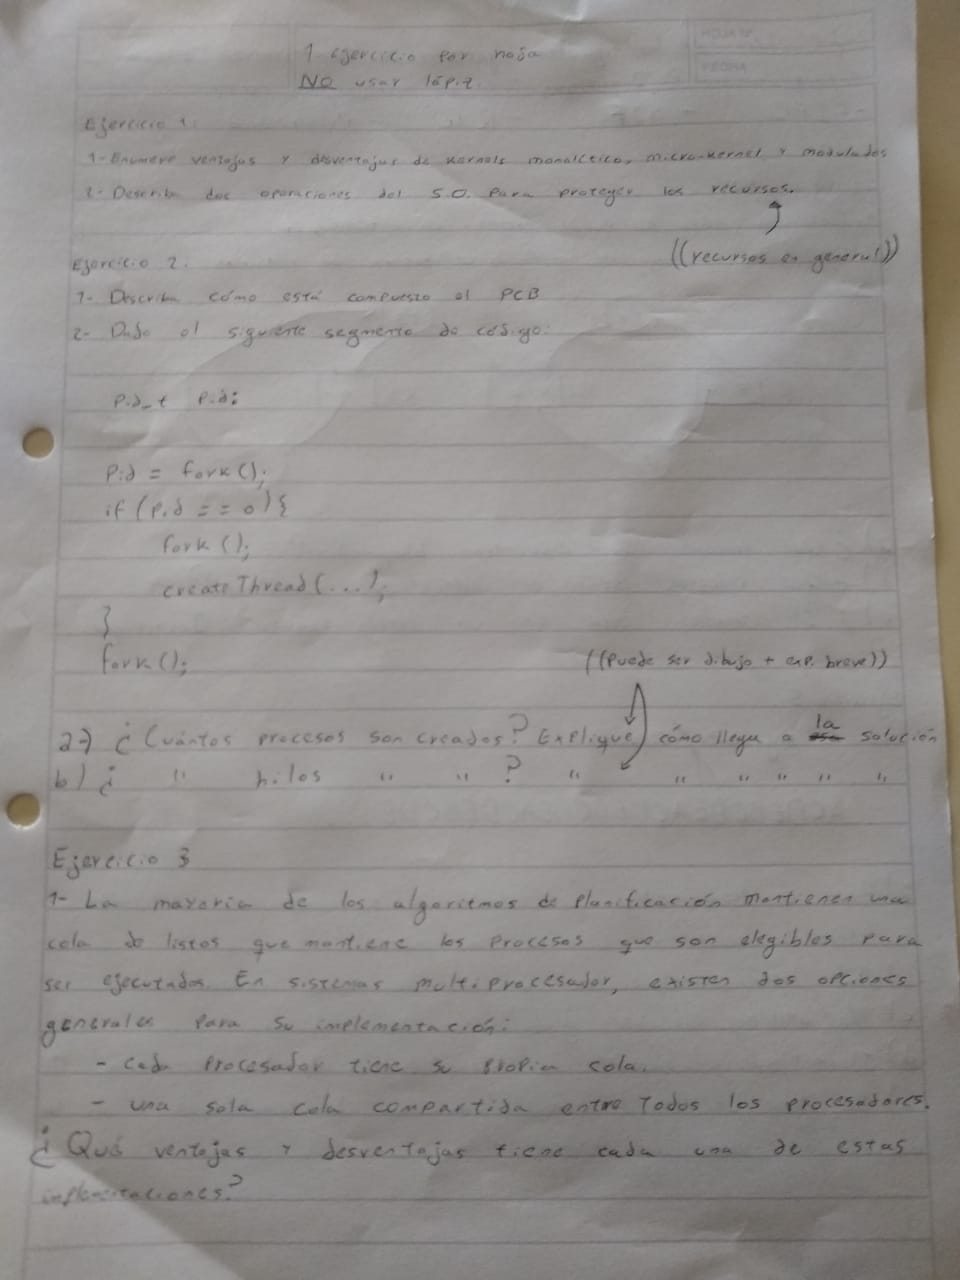 HOJA Nº
FECHA
1 ejercicio por hoja
NO usar lápiz.
Ejercicio 1:
1- Enumere ventajas y desventajas de kernels monolítico, micro-kernel y modulados
2- Describa dos operaciones del S.O. para proteger los recursos.
((recursos en general))
Ejercicio 2:
1- Describa cómo está compuesto el PCB
2- Dado el siguiente segmento de código:
pid_t pid;
pid = fork();
if (pid == 0) {
fork();
createThread(...);
}
fork();
((puede ser dibujo + exp. breve))
a) ¿Cuántos procesos son creados? Explique cómo llegu a la solución
b) ¿ " hilos " " ? " " " " " "
Ejercicio 3
1- La mayoría de los algoritmos de planificación mantienen una
cola de listos que mantiene los procesos que son elegibles para
ser ejecutados. En sistemas multiprocesador, existen dos opciones
generales para su implementación:
- cada procesador tiene su propia cola.
- una sola cola compartida entre todos los procesadores.
¿Qué ventajas y desventajas tiene cada una de estas
implementaciones?